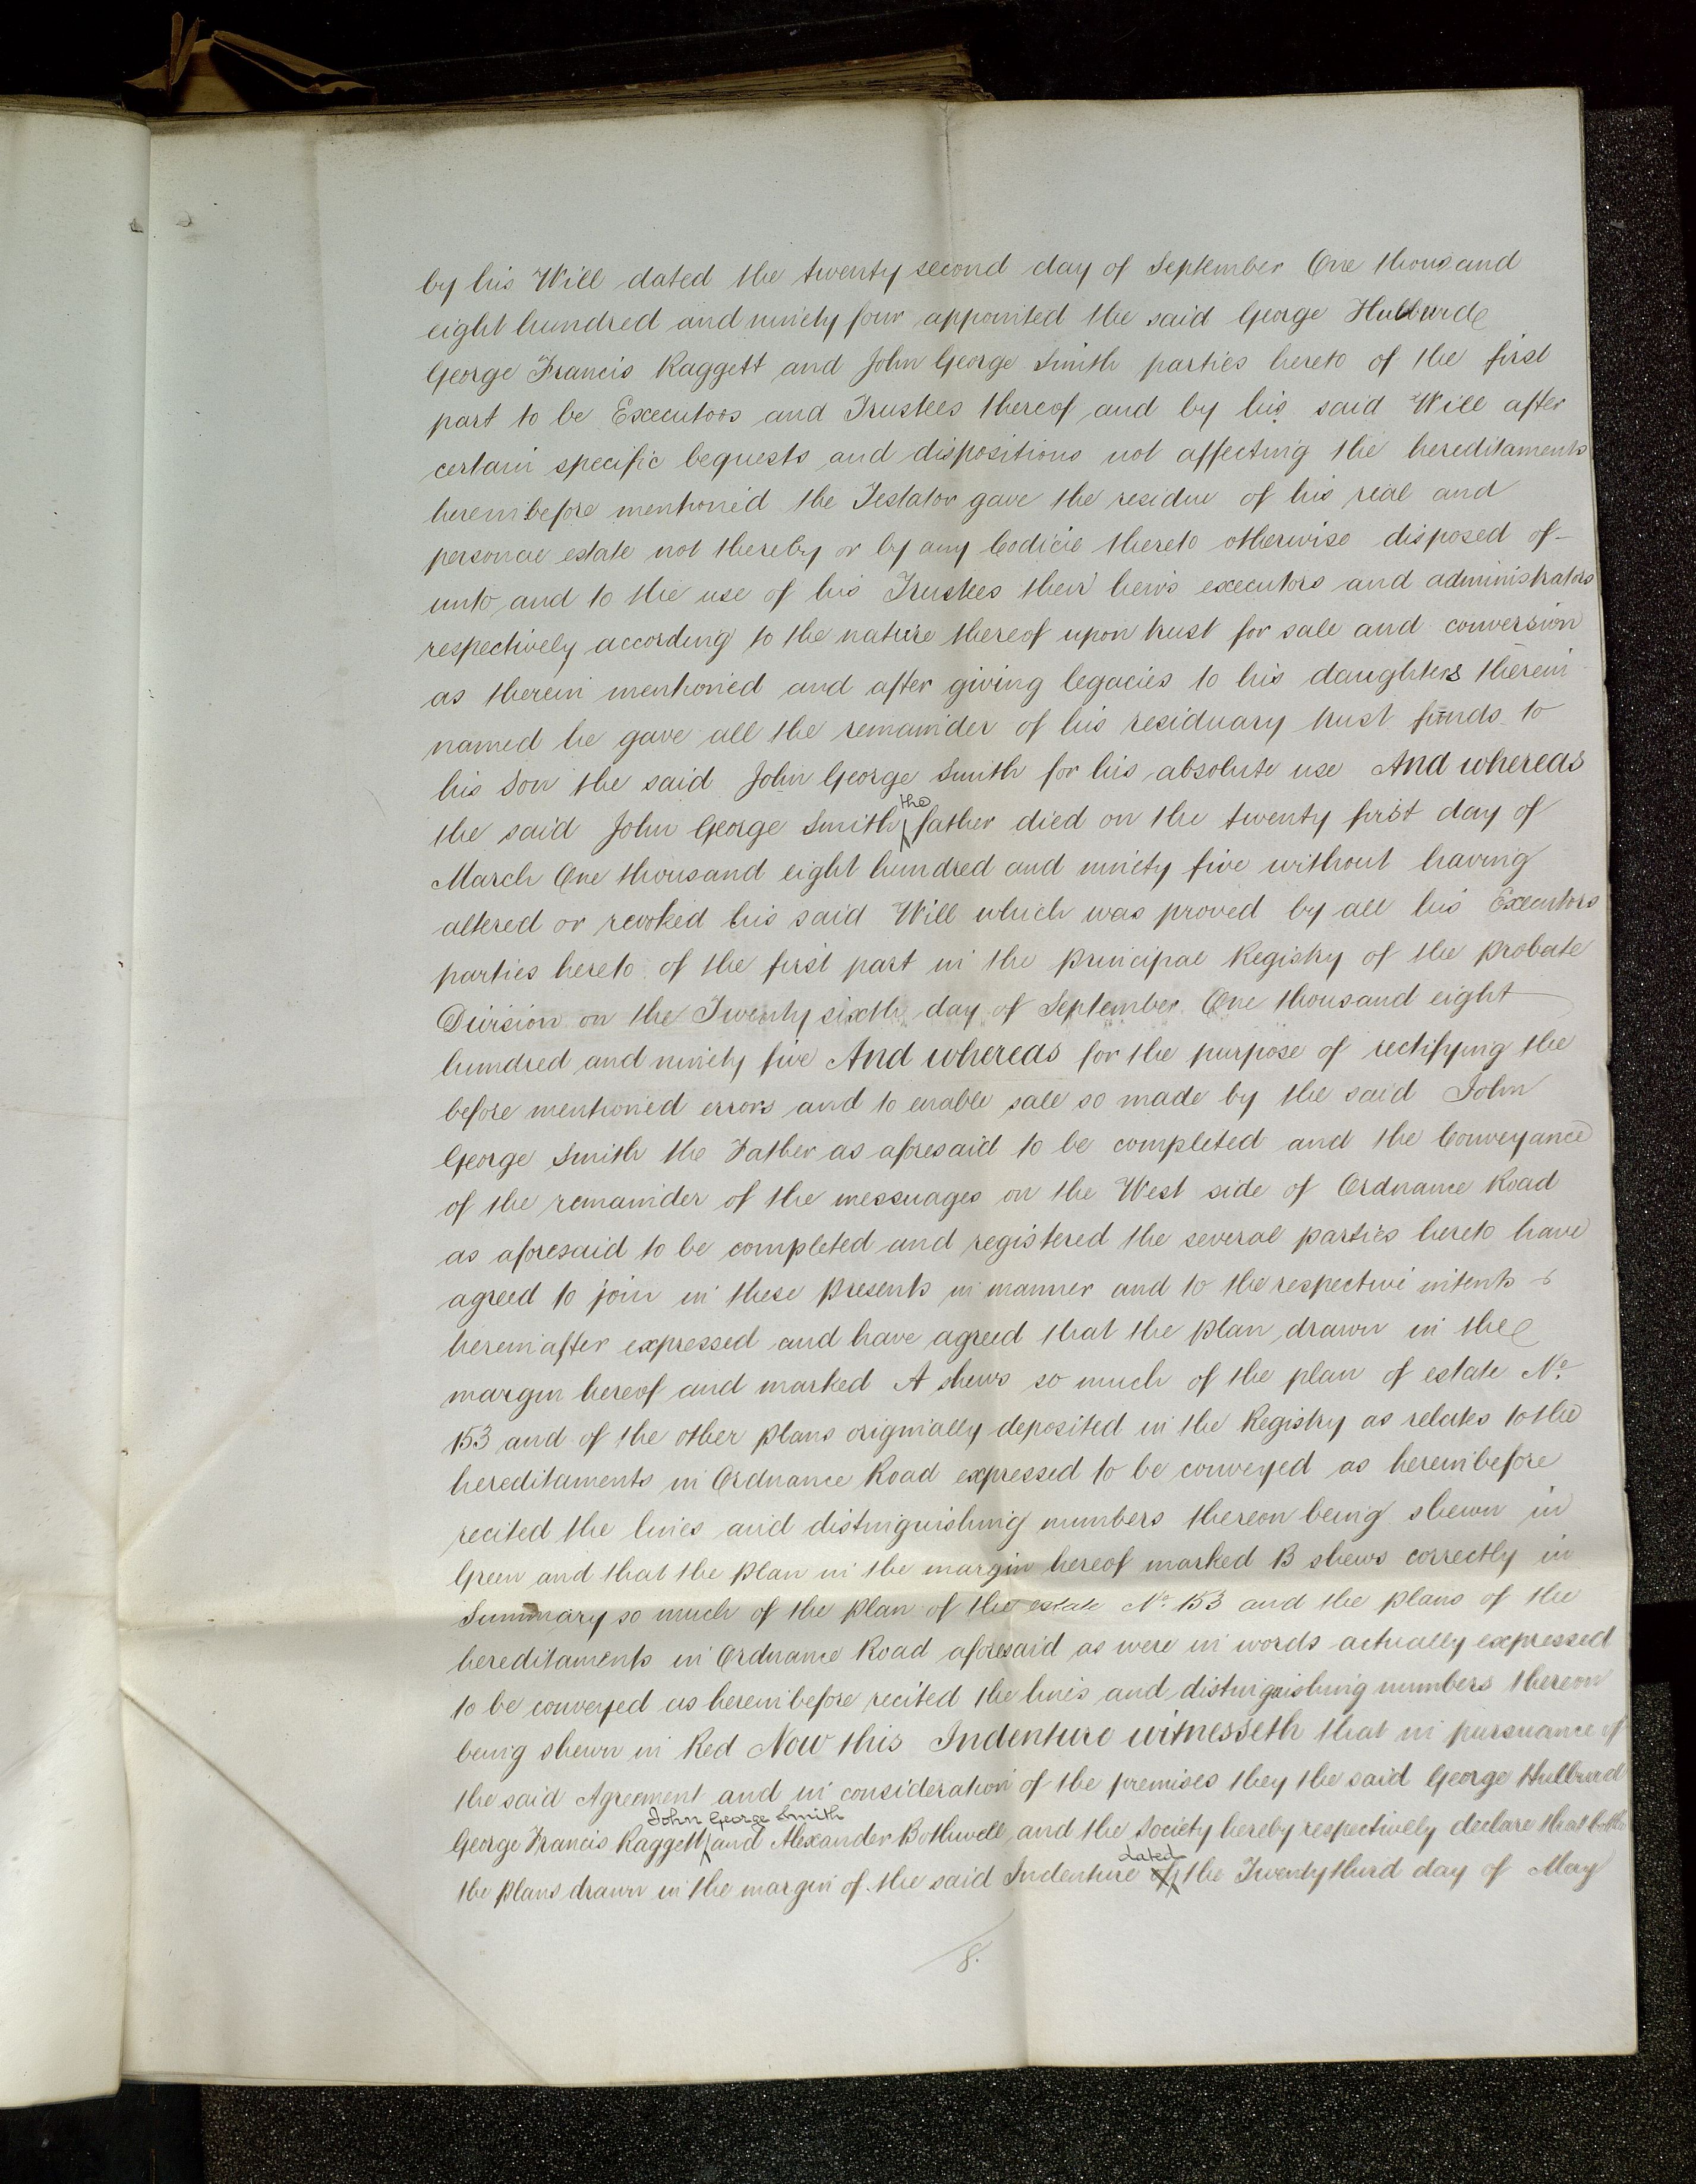 by his Will dated the twenty second day of September One thousand
eight hundred and ninety four appointed the said George Hulburd
George Francis Raggett and John George Smith parties hereto of the first
part to be Executors and Trustees thereof and by his said Will after
certain specific bequests and dispositions not affecting the hereditaments
hereinbefore mentioned the Testator gave the residue of his real and
personal estate not thereby or by any Codicil thereto otherwise disposed of
unto and to the use of his Trustees their heirs executors and administrators
respectively according to the nature thereof upon trust for sale and conversion
as therein mentioned and after giving legacies to his daughters therein
named he gave all the remainder of his residuary trust funds to
his Son the said John George Smith for his absolute use And whereas
the said John George Smith the father died on the twenty first day of
March One thousand eight hundred and ninety five without having
altered or revoked his said Will which was proved by all his Executors
parties hereto of the first part in the principal Registry of the probate
Division on the Twenty sixth day of September One thousand eight
hundred and ninety five And whereas for the purpose of rectifying the
before mentioned errors and to enable sale so made by the said John
George Smith the Father as aforesaid to be completed and the Conveyance
of the remainder of the messuages on the West side of Ordnance Road
as aforesaid to be completed and registered the several parties hereto have
agreed to join in these presents in manner and to the respective intents
hereinafter expressed and have agreed that the plan drawn in the
margin hereof and marked A shews so much of the plan of estate No.
153 and of the other plans originally deposited in the Registry as relates to the
hereditaments in Ordnance Road expressed to be conveyed as hereinbefore
recited the lines and distinguishing numbers thereon being shewn in
Green and that the plan in the margin hereof marked B shews correctly in
Summary so much of the plan of the estate No. 153 and the plans of the
hereditaments in Ordnance Road aforesaid as were in words actually expressed
to be conveyed as hereinbefore recited the lines and distinguishing numbers thereon
being shewn in Red Now this Indenture witnesseth that in pursuance of
the said Agreement and in consideration of the premises they the said George Hulburd
George Francis Raggett John George Smith and Alexander Bothwell and the Society hereby respectively declare that both
the plans drawn in the margin of the said Indenture dated the Twenty third day of May
8.